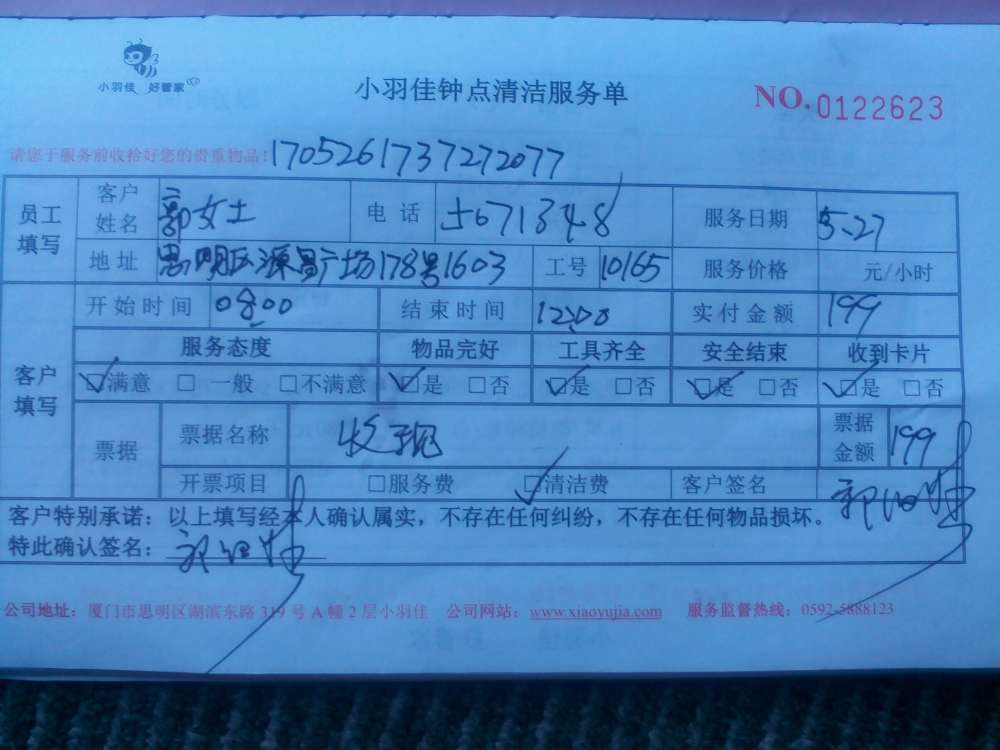 小羽佳 好管家
小羽佳钟点清洁服务单
NO.0122623
请您于服务前收拾好您的贵重物品:1705261737272077
员工填写 客户姓名 郭女士 电话 5671348 服务日期 5-27
地址 思明区源昌广场178号1603 工号 10165 服务价格 元/小时
客户填写 开始时间 08:00 结束时间 12:00 实付金额 199
服务态度 物品完好 工具齐全 安全结束 收到卡片
☑满意 □一般 □不满意 ☑是 □否 ☑是 □否 ☑是 □否 ☑是 □否
票据 票据名称 收现 票据金额 199
开票项目 □服务费 ☑清洁费 客户签名
客户特别承诺：以上填写经本人确认属实，不存在任何纠纷，不存在任何物品损坏。
特此确认签名：
公司地址：厦门市思明区湖滨东路319号A幢2层小羽佳 公司网站：www.xiaoyujia.com 服务监督热线：0592-5888123